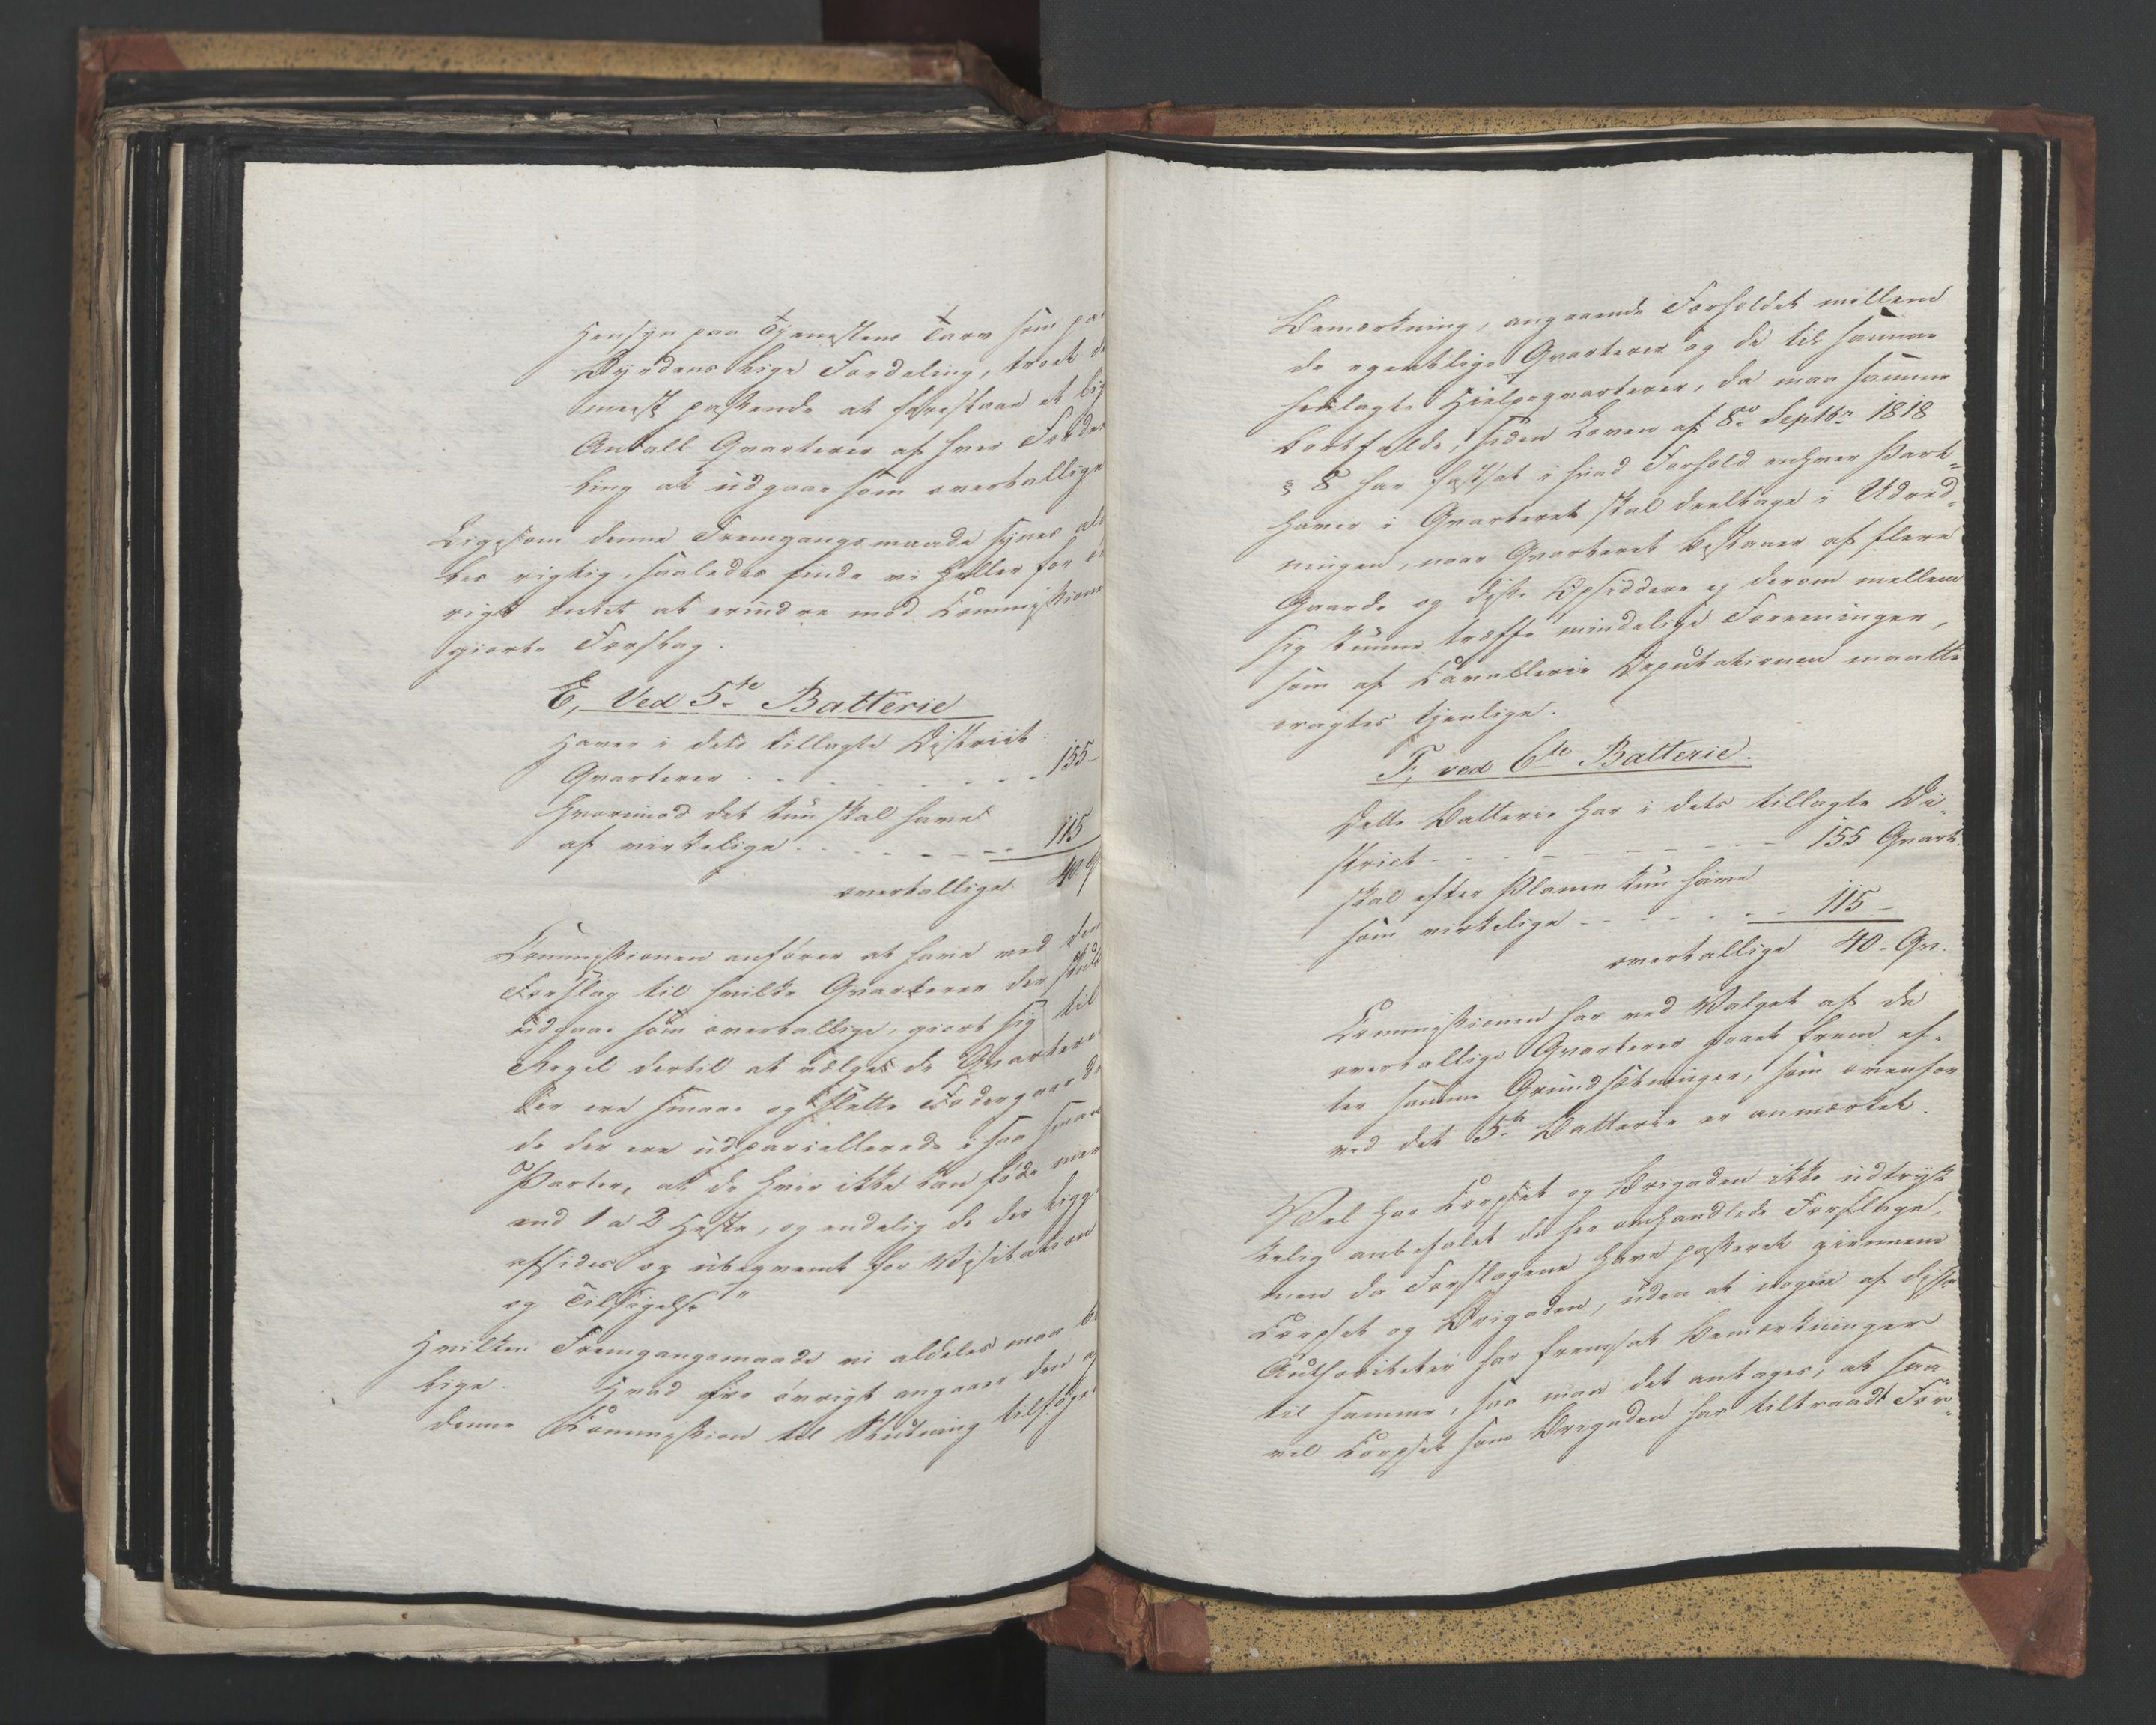 Hensyn paa Tjenestens Tarv som paa
Byrdens lige Fordeling, troet de
meest passende at foreslaae et lig
Antall Qvarterer af hver Forde
ling at udgaae som overtallige
Ligesom denne Fremgangsmaade synes alde
les rigtig, saaledes finde vi heller for øv
rigt intet at erindre mod Commissionens
giorte Forslag.
E, Ved 5te Batterie
Haver i dets tillagte District:
Qvarterer - - - - - - - 155-
hvorimod det kun skal have
af virkelige - - - - - 115
overtallige 40 Q
Commissionen anfører at have ved den
Forslag til hvilke Qvarterer der skulde
udgaae som overtallige, giort sig til
Regel dertil at vælge de Qvarterer
der ere smaae og slette Fodergaarde
de der ere udparcellerede i saa smaae
Parter, at de hver ikke kan føde mer
end 1 a 2 Heste, og endelig de der ligge
afsides og ubeqvemt for Visitation
og Tilsigelse"
Hvilken Fremgangsmaade vi aldeles maa bi
lige. Hvad for øvrigt angaaer den af
denne Commission til Slutning tilføyede
Bemærkning, angaaende Forholdet mellem
de egentlige Qvarterer og de til samme
henlagte Hielpeqvarterer, da maa samme
bortfalde, siden Loven af 8de Septbr 1818
§ 8 har fastsat i hvad Forhold enhver Part-
haver i Qvarteret skal deeltage i Udred-
ningen, naar Qvarteret bestaaer af flere
Gaarde og disses Opsiddere ej derom mellem
sig kunne træffe mindelige Foreeninger,
som af Cavallerie Deputationen maatte
eragtes tjenlige.
F, ved 6te Batterie.
Dette Batterie har i dets tillagte Di-
strict - - - - - - - - 155 Qvart.
skal efter Planen kun have
som virkelige - - - - - - 115-
overtallige 40- Qv.
Commissionen har ved Valget af de
overtallige Qvarterer gaaet frem ef-
ter samme Grundsætninger, som ovenfor
ved det 5te Batterie er anmærket.
Vel har Corpset og Brigaden ikke udtryk
kelig anbefalet de her omhandlede Forslage,
men da Forslagene have passeret giennem
Corpset og Brigaden, uden at nogen af disse
Authoriteter har fremsat Bemærkninger
til samme, saa maa det antages, at saa
vel Corpset som Brigaden har tiltraadt For-